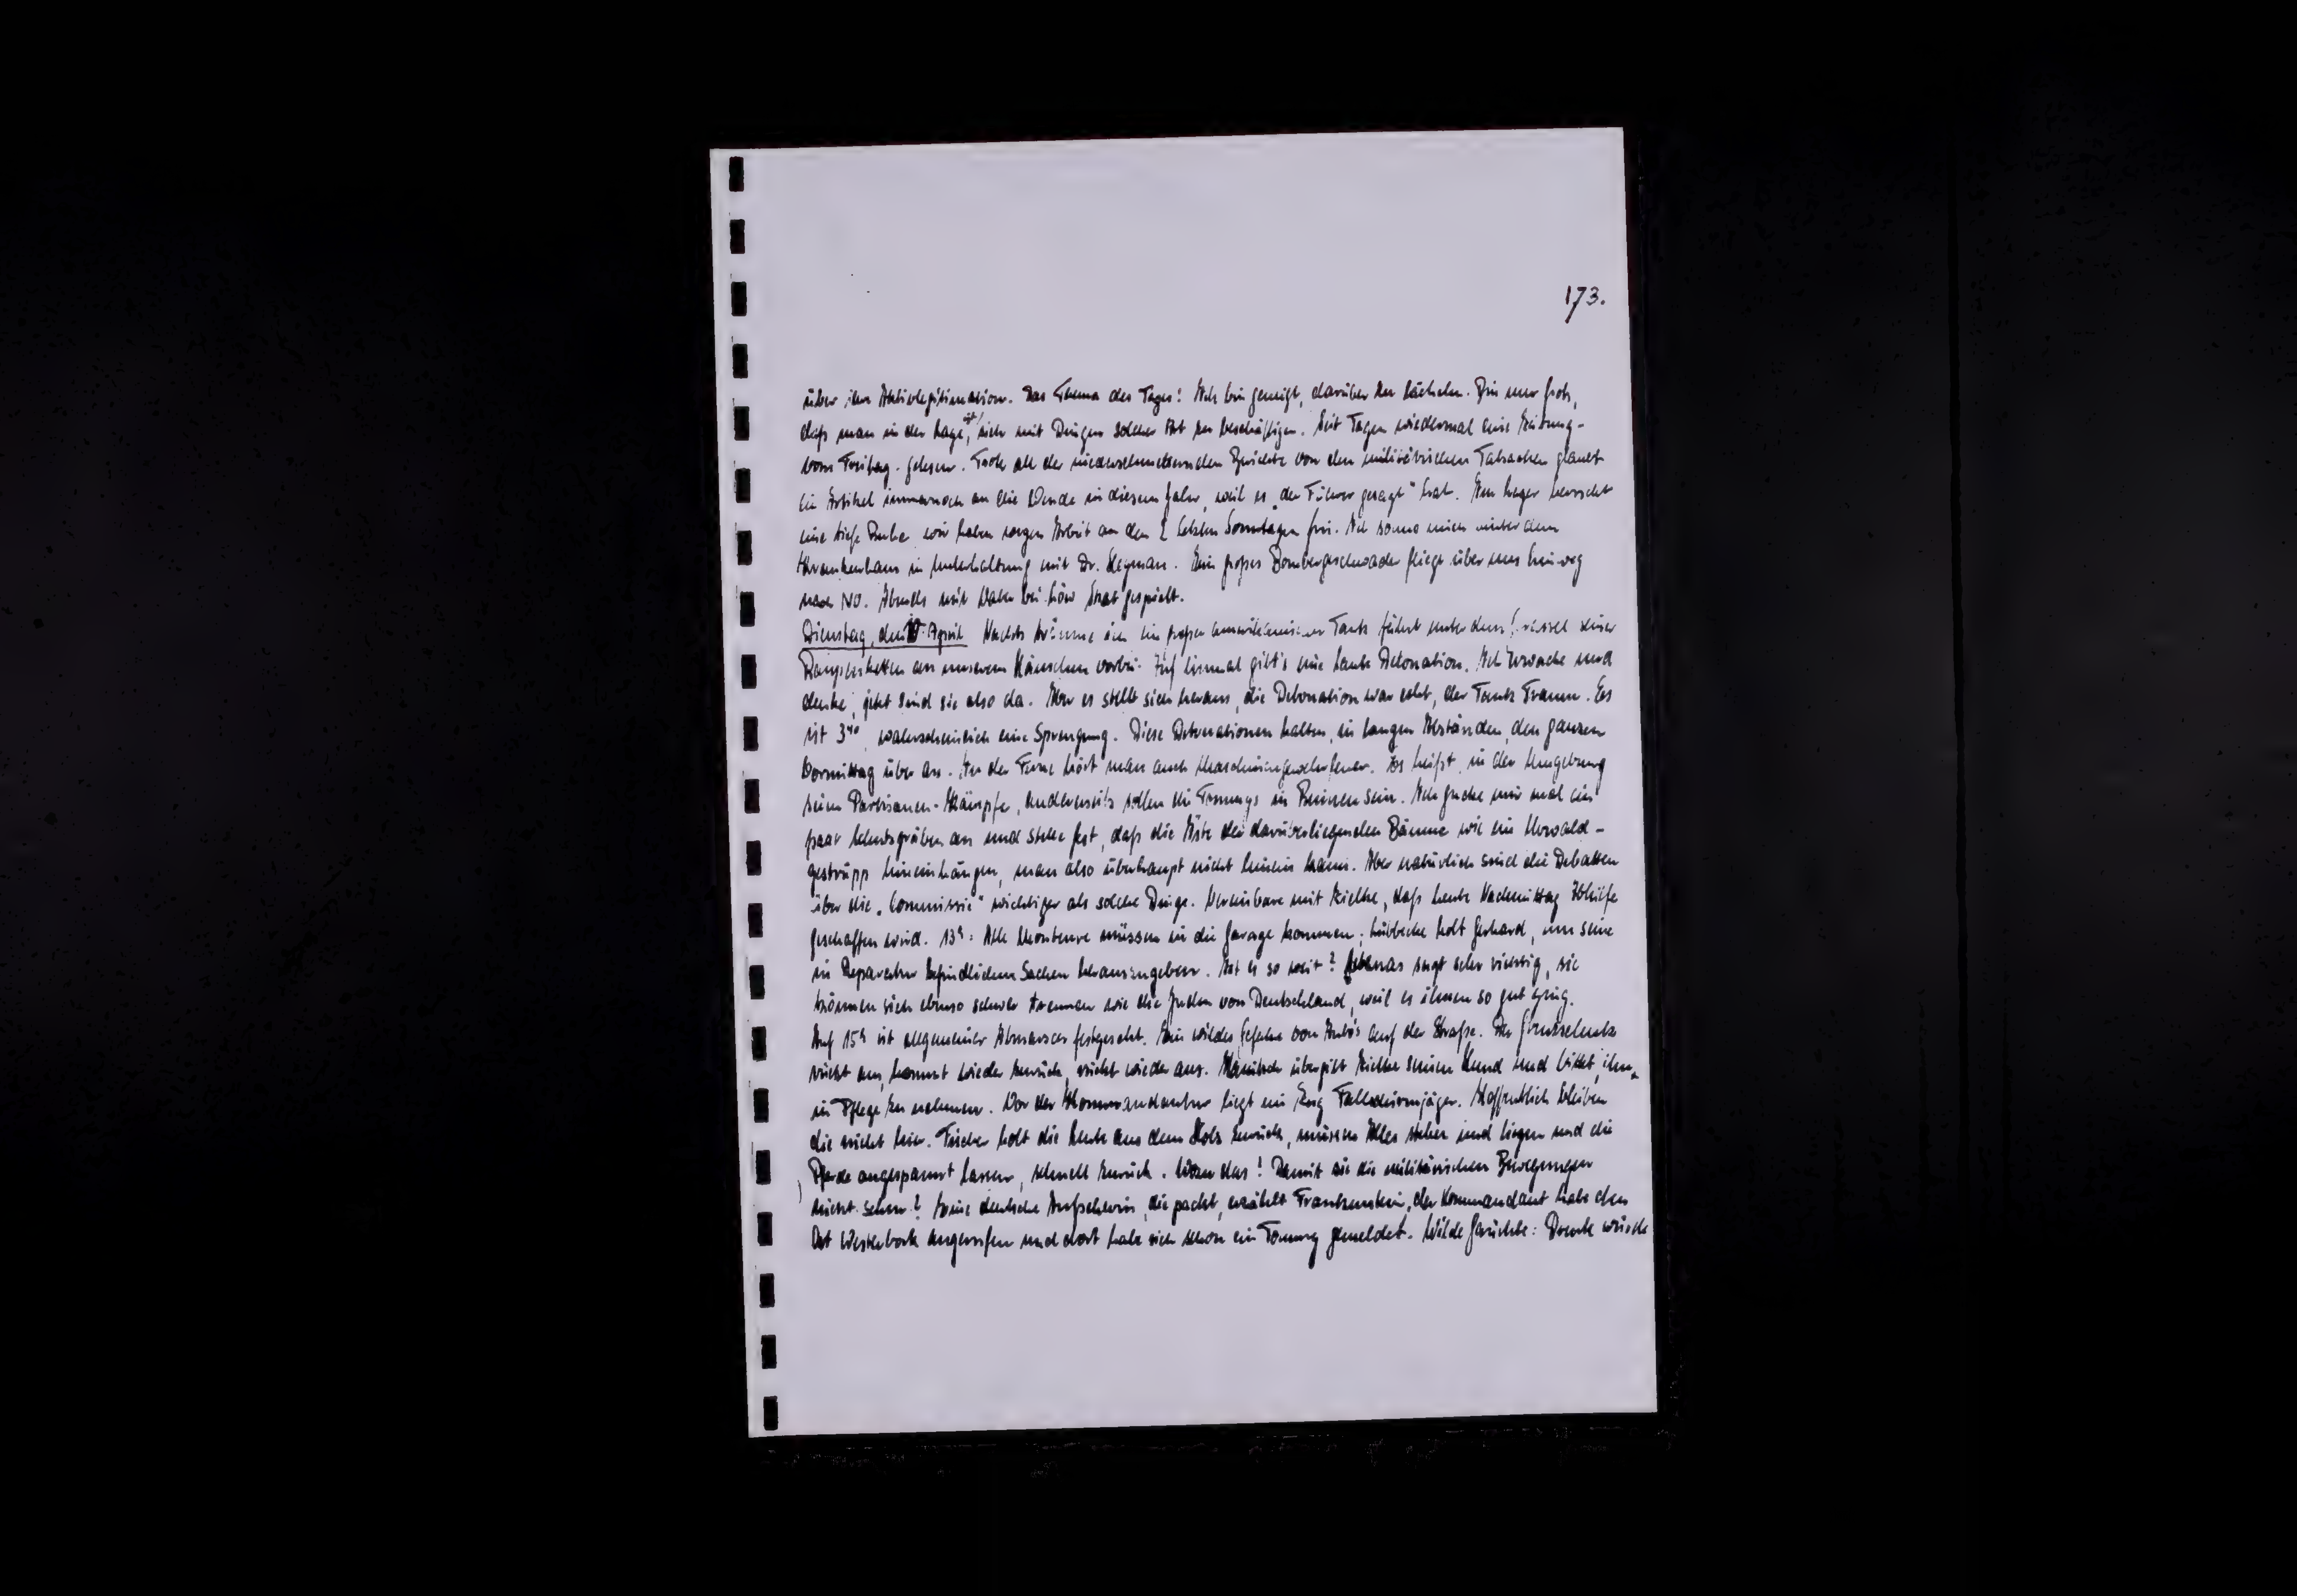 173.
über ihre Aktivlegitimation. Das Thema des Tages! Ich bin geneigt, darüber zu lächeln. Bin nur froh,
daß man in der Lage ist, sich mit Dingen solcher Art zu beschäftigen. Seit Tagen wiedermal eine Zeitung -
vom Freitag - gelesen. Trotz all der niederschmetternden Berichte von den militärischen Tatsachen glaubt
ein Artikel immernoch an die Wende in diesem Jahr, weil es „der Führer gesagt" hat. Im Lager herrscht
eine tiefe Ruhe wir haben wegen Arbeit an den 2 letzten Sonntagen frei. Ich sonne mich hinter dem
Krankenhaus in Unterhaltung mit Dr. Heyman. Ein großes Bombergeschwader fliegt über uns hinweg
nach NO. Abends mit bei Löw Skat gespielt.
Dienstag, den 10. April Nachts träume ich ein großer kanadischer Tank fährt unter dem seiner
Raupenketten an unserem Häuschen vorbei. Auf einmal gibt's eine laute Detonation. Ich erwache und
denke, jetzt sind sie also da. Aber es stellt sich heraus, die Detonation war echt, der Tank Traum. Es
ist 3⁴⁰, wahrscheinlich eine Sprengung. Diese Detonationen halten, in langen Abständen, den ganzen
Vormittag über an. In der Ferne hört man auch Maschinengewehrfeuer. Es heißt, in der Umgebung
seien Partisanen-Kämpfe, andererseits sollen die Tommys in Beilen sein. Ich gucke mir mal ein
paar Schutzgräben an und stelle fest, daß die Äste der darüberliegenden Bäume wie ein Urwald-
gestrüpp hineinhängen, man also überhaupt nicht hinein kann. Aber natürlich sind die Debatten
über die „Commissie" wichtiger als solche Dinge. Vereinbare mit Zielke, daß heute Nachmittag Abhilfe
geschaffen wird. 13ʰ: Alle Monteure müssen in die Garage kommen; Lübbecke holt Gerhard, um seine
in Reparatur befindlichen Sachen herauszugeben. Ist es so weit? sagt sehr richtig, sie
können sich ebenso schwer trennen wie die Juden von Deutschland, weil es ihnen so gut ging.
Auf 15ʰ ist allgemeiner Abmarsch festgesetzt. Ein wildes Gefahre von Autos auf der Straße. Der Grenzschutz
rückt aus, kommt wieder zurück, rückt wieder aus. übergibt Zielke seinen Hund und bittet, ihn
in Pflege zu nehmen. Vor der Kommandantur liegt ein Zug Fallschirmjäger. Hoffentlich bleiben
die nicht hier. Fischer holt die Leute aus dem Holz zurück, müssen Alles stehen und liegen und die
Pferde angespannt lassen, schnell zurück. Wozu das! Damit sie die militärischen Bewegungen
nicht sehen? Eine deutsche Aufseherin, die packt, erzählt Frankenstein, der Kommandant habe den
Ort Westerbork angerufen und dort habe sich schon ein Tommy gemeldet. Wilde Gerüchte: Drente würde